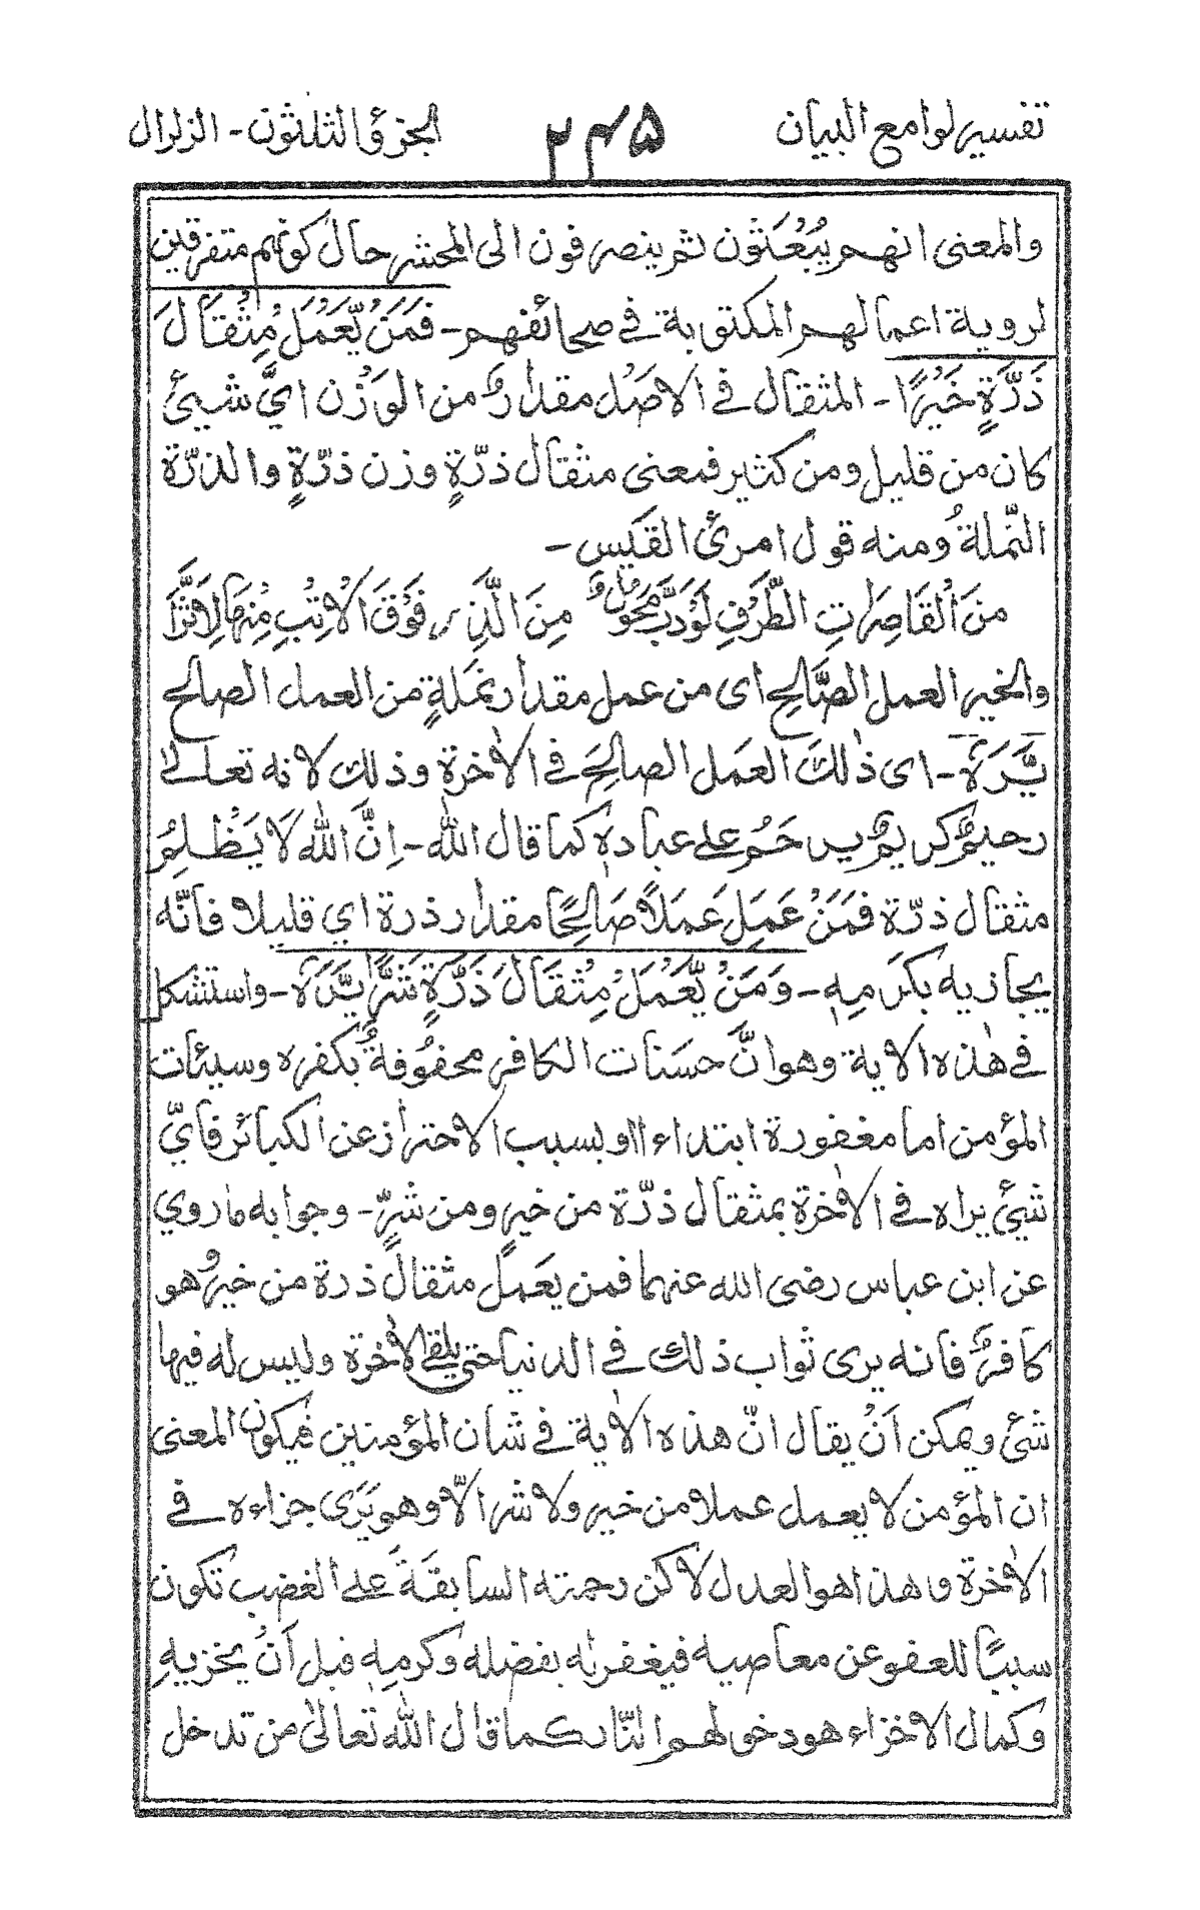 تفسير لوامع البيان ۲۴۵ الجزؤ الثلثون - الزلزال
والمعنى انهم يُبْعَثون ثم ينصرفون الى المحشر حال كونهم متفرقين
لروية اعمالهم المكتوبة في صحائفهم - فَمَنْ يَّعْمَلْ مِثْقَالَ
ذَرَّةٍ خَيْرًا - المثقال في الاصْل مقدارٌ من الوَزْن ايَّ شيئ
كان من قليل ومن كثير فمعنى مثقال ذرّةٍ وزن ذرّةٍ والذرّة
النّملةُ ومنه قول امرئ القَيس -
منَ الْقَاصِرَاتِ الطَّرْفِ لَوْدَبَّ مُحْوِلٌ مِنَ الَّذرِّ فَوْقَ الْاِتْبِ مِنْهَا لِاَثَّرَا
والخير العمل الصَّالح اى من عمل مقدار نَملةٍ من العمل الصالح
يَّرَهٗ - اى ذٰلك العَمل الصالحَ في الاٰخرة وذلك لانه تعالىٰ
رحيمٌ كريمٌ يرحَمُ على عبادهٖ كما قال اللّٰه - اِنَّ اللّٰه لَا يَظْلِمُ
مثقال ذرّة فَمَنْ عَمِلَ عَمَلًا صَالِحًا مقدار ذرة اي قليلا فانّه
يجازيه بكَرَمِهٖ - وَمَنْ يَّعْمَلْ مِثْقَالَ ذَرَّةٍ شَرًّا يَّرَهٗ - واستشكل
في هٰذه الاٰية وهو انَّ حسَنات الكافر محفُوفةٌ بكفره وسيئات
المؤمن اما مغفورة ابتداءا او بسبب الاحتراز عن الكبائر فايّ
شيئ يراه في الاٰخرة بمثقال ذرّة من خيرٍ ومن شرٍّ - وجوابه ما روي
عن ابن عباس رضى الله عنهما فمن يعَمل مثقالَ ذرة من خير وهو
كافرٌ فانه يرى ثواب ذلك في الدنيا حتى يلقى الاٰخرة وليس له فيها
شئ ويمكن اَنْ يقال انّ هذه الاٰية في شان المؤمنين فيكون المعنى
ان المؤمن لا يعمل عملا من خير ولا شر الّا وهو يَرَى جزاءه في
الاٰخرة وهذا هو العدل لاكن رحمته السابقَةَ على الغضب تكون
سببًا للعفو عن معاصيه فيغفر له بفضله وكرمِهٖ قبل اَنْ يخزيهِ
وكمال الاخزاء هو دخولهم النّار كما قال اللّٰه تعالىٰ من تدخل